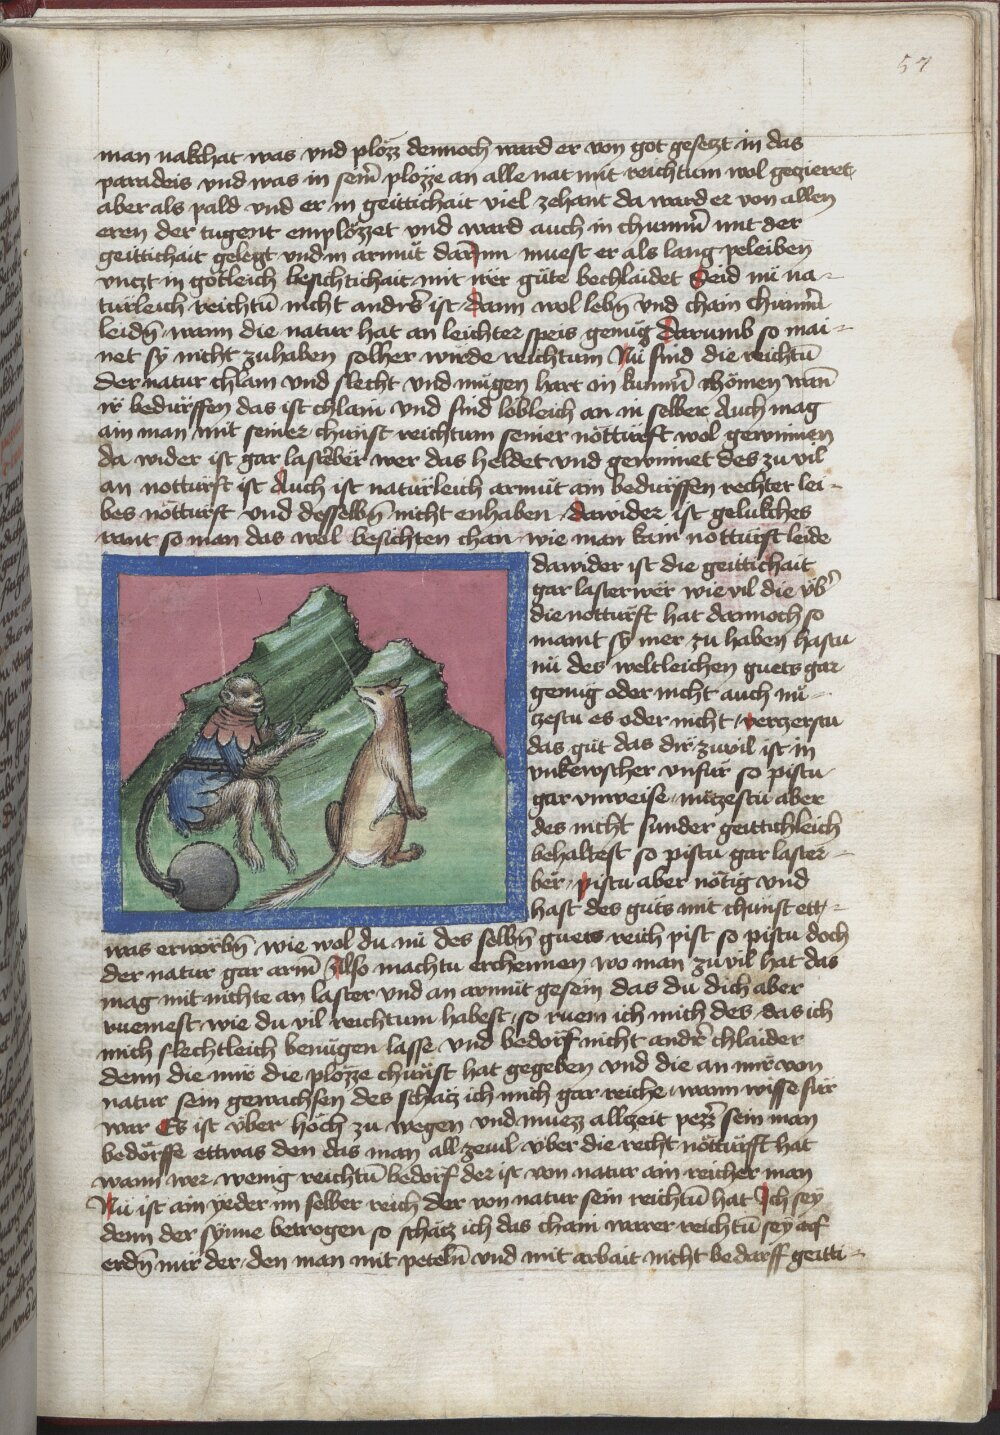 57
man nakchat was vnd plozz dennoch ward er von got geseczt in das
paradeis vnd was in sein̄ plozze an alle nat mit reichtum wol geczieret
aber als pald vnd er in geittichait viel zehant da ward er von allen
eren der tugent emplözzet vnd ward auch in chumm̄ mit der
geittichait gelegt vnd in armüt darinn muest er als lang peleiben
vnczt in götleich besichtichait mit irer güte bechlaidet Seid nü na-
türleich reichtū nicht anders ist dann wol lebn̄ vnd chain chumm̄
leidn̄ wann die natur hat an leichter speis genüg Darumb so mai-
net sy nicht zuhaben solher wirde reichtum Nü sind die reichtū
der natur chlain vnd slecht vnd mügen hart in kumm̄ chömen wan̄
ir bedürffen das ist chlain vnd sind lobleich an in selber Auch mag
ain man mit seiner chunst reichtum seiner nötturft wol gewinnen
da wider ist gar lasterbër wer das heldet vnd gewinnet des zu vil
an notturft ist Auch ist natürleich armüt ain bedürffen rechter lei-
bes nötturft vnd desselbn̄ nicht enhaben Dawider ist gelukches
want so man das wol besichten chan wie man kain notturft leide
dawider ist die geittichait
gar lasterwër wie vil die vb̄
die notturft hat dannoch so
maint sy mer zu haben hastu
nü des weltleichen guets gar
genüg oder nicht auch nü-
czestu es oder nicht verczerstu
das güt das dir zuuil ist in
vnkewscher vnfür so pistu
gar vnweise nüczestu aber
des nicht sunder geittichleich
behaltest so pistu gar laster-
bër pistu aber nötig vnd
hast des guts mit chunst ett-
was erworbn̄ wie wol du nü des selbn̄ guets reich pist so pistu doch
der natur gar arm̄ Also machtu erchennen wo man zuuil hat das
mag mit nichte an laster vnd an armüt gesein das du dich aber
ruemest wie du vil reichtum habest so ruem ich mich des das ich
mich slechtleich benügen lasse vnd bedorf nicht andr̄ chlaider
denn die mir die plozze chunst hat gegeben vnd die an mir von
natur sein gewachsen des schacz ich mich gar reiche wann wisse für
war Es ist vber höch zu wegen vnd muezz allczeit pezz̄ sein man
bedörffe ettwas den das man all zeuil vber die recht notturfft hat
wann wer wenig reichtū bedorf der ist von natur ain reicher man
Nü ist ain yeder im selber reich der von natur sein reichtū hat Ich sey
denn der synne betrogen so schacz ich das chain warer reichtū sey auf
erdn̄ mir der den man mit petteln̄ vnd mit arbait nicht bedarff geitti-